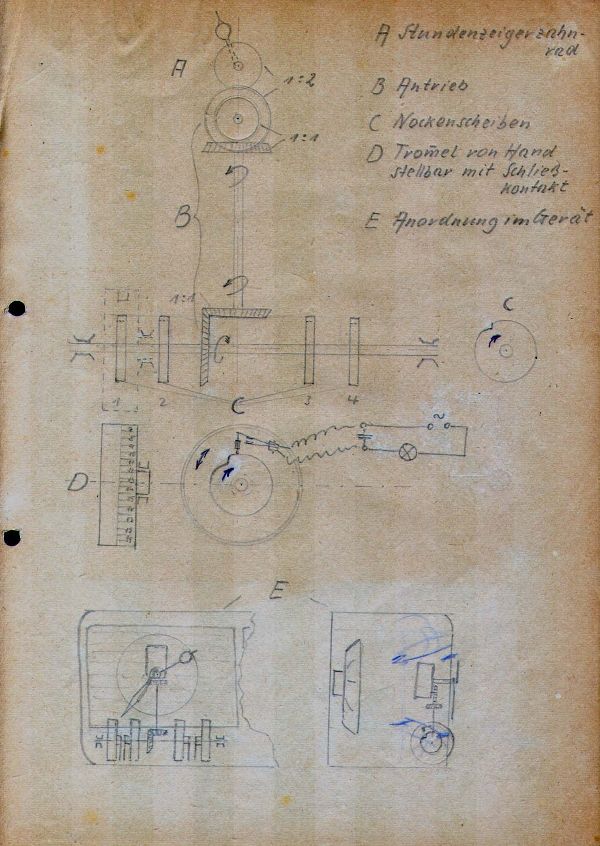 A Stundenzeigerzahn-
rad
A
1:2
B Antrieb
C Nockenscheiben
1:1
D Trom̄el von Hand
stellbar mit Schließ-
kontakt
B
E Anordnung im Gerät
1:1
C
1 2 3 4
C
~
D
E